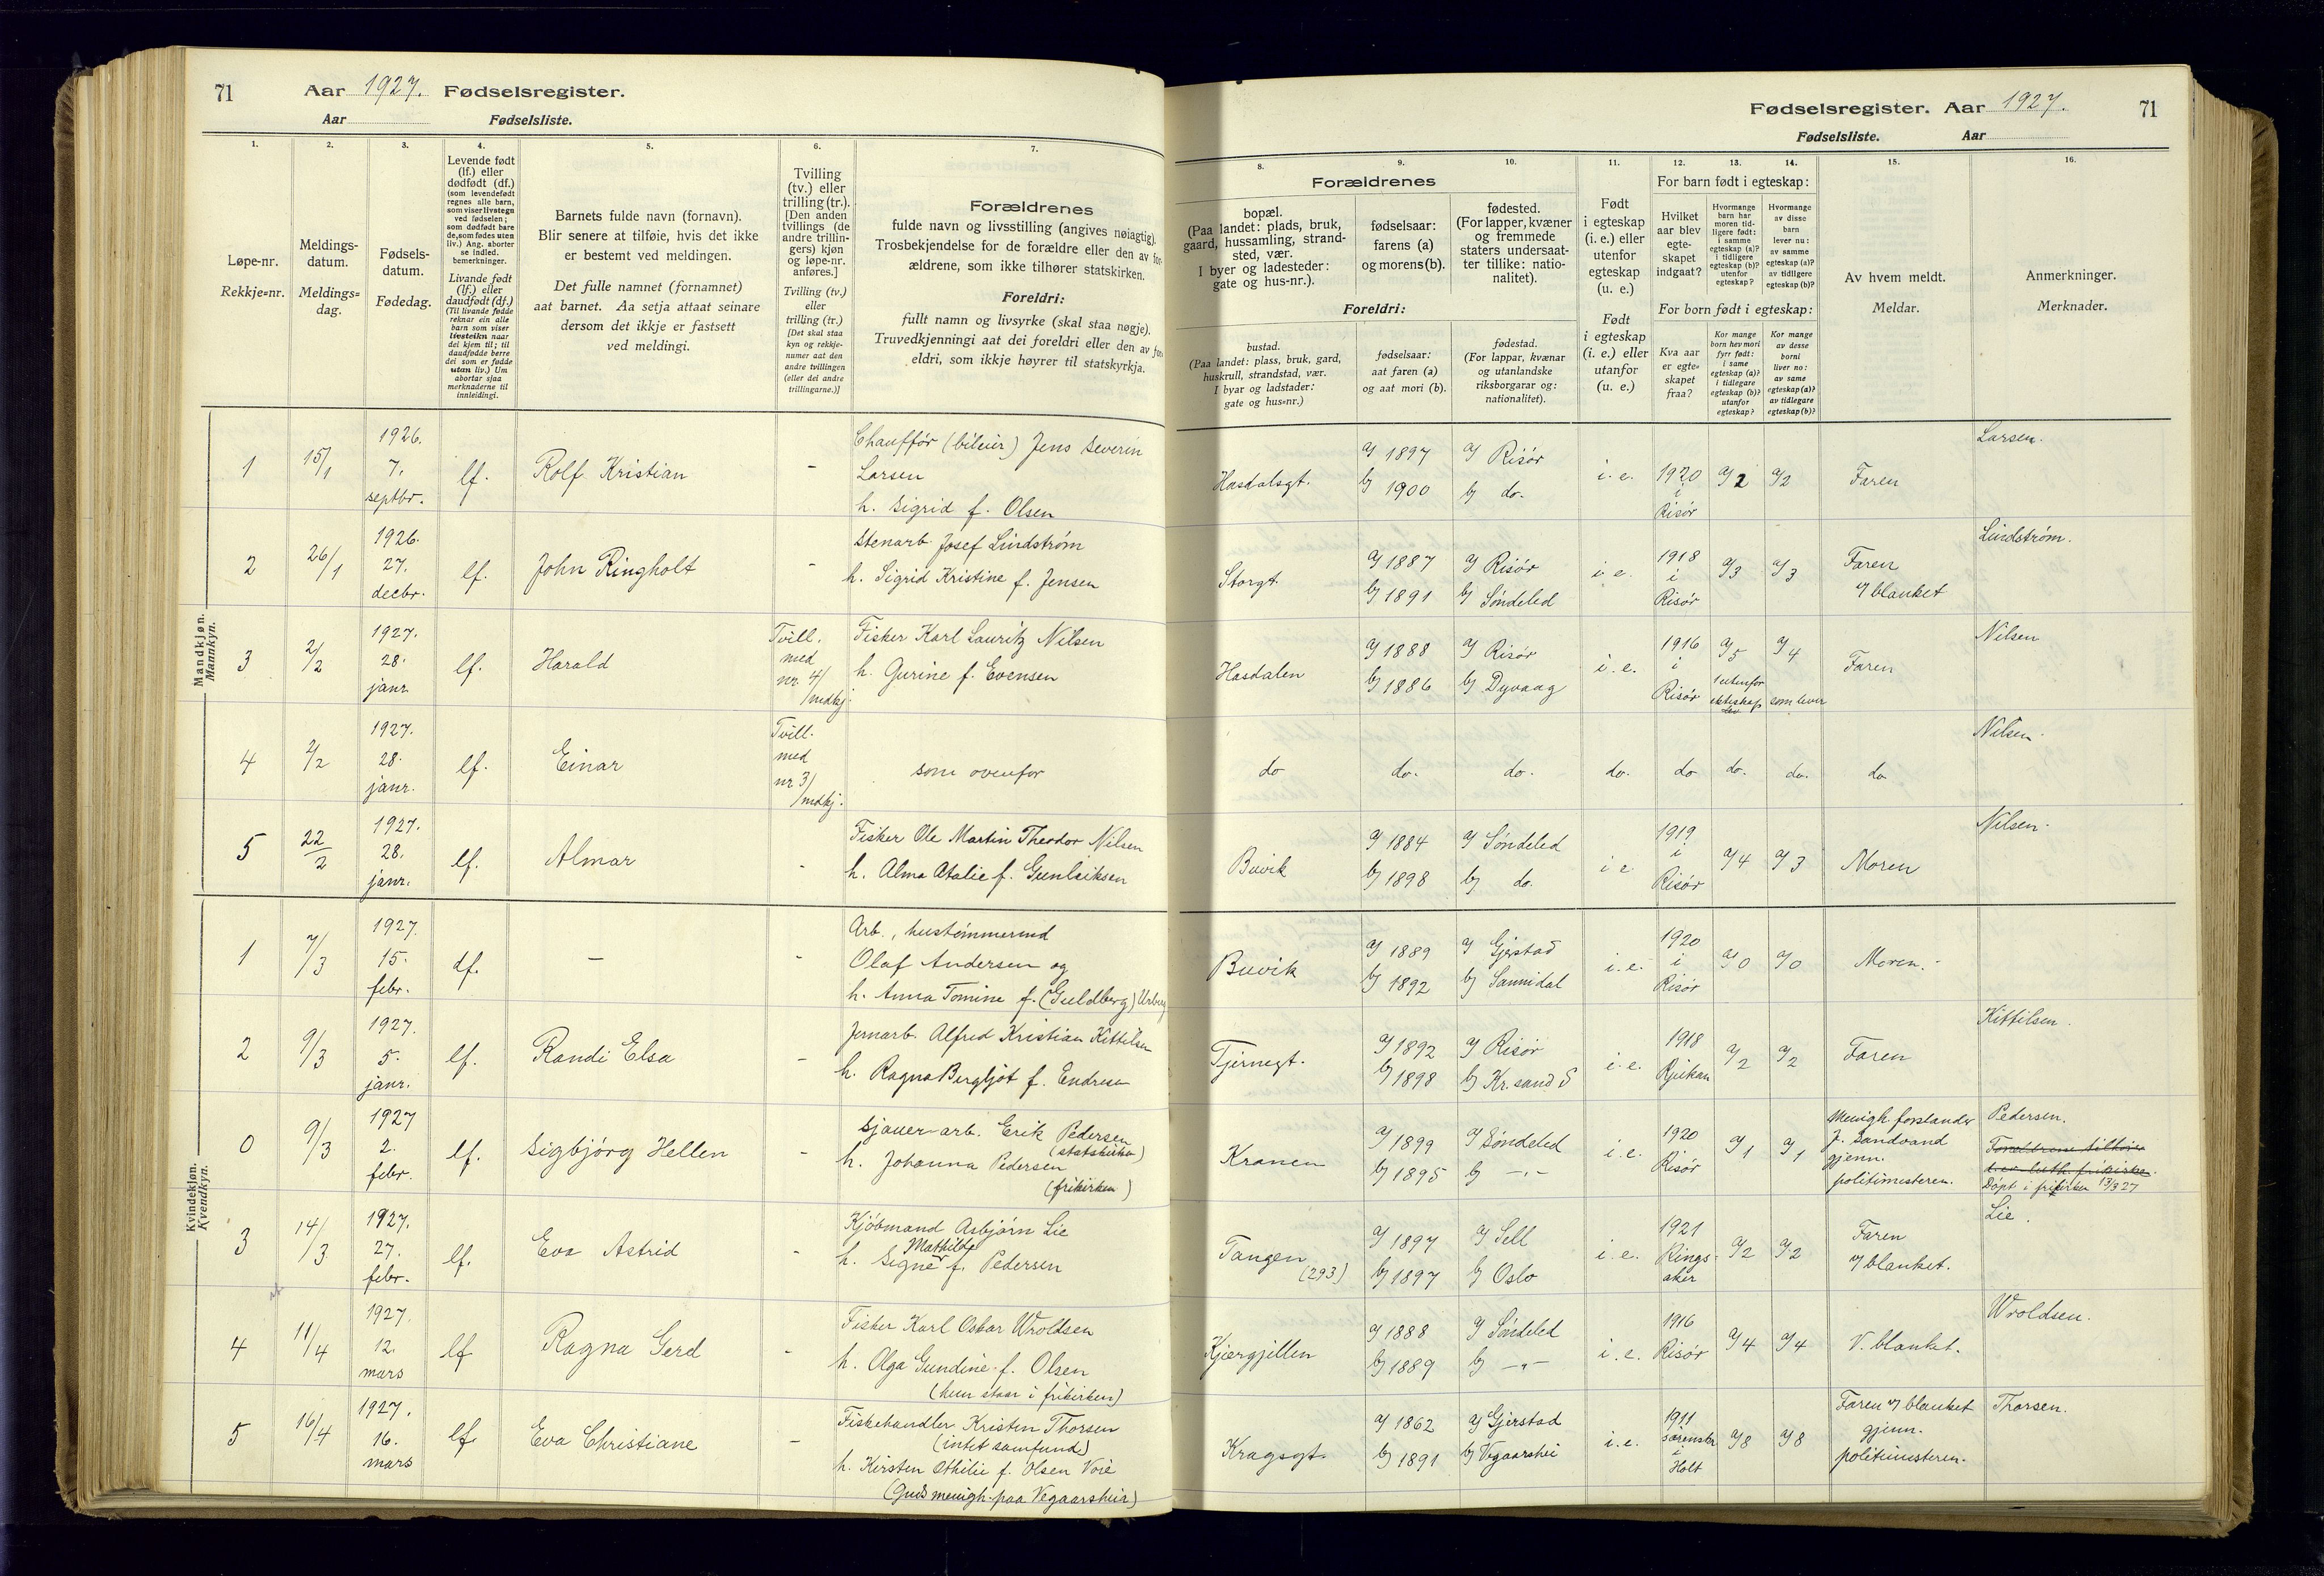 71 Aar 1927. Fødselsregister.
Aar Fødselsliste.
1. 2. 3. 4. 5. 6. 7.
Løpe-nr.
Rekkje=nr.
Meldings-
datum.
Meldings=
dag.
Fødsels-
datum.
Fødedag.
Levende født
(lf.) eller
dødfødt (df.)
(som levendefødt
regnes alle barn,
som viser livstegn
ved fødselen;
som dødfødt bare
de, som fødes uten
liv.) Ang. aborter
se indled.
bemerkninger.
Livande født
(lf.) eller
daudfødt (df.)
(Til livande fødde
reknar ein alle
barn som viser
livsteikn naar
dei kjem til; til
daudfødde berre
dei som er fødde
utan liv.) Um
abortar sjaa
merknaderne til
innleidingi.
Barnets fulde navn (fornavn).
Blir senere at tilføie, hvis det ikke
er bestemt ved meldingen.
Det fulle namnet (fornamnet)
aat barnet. Aa setja attaat seinare
dersom det ikkje er fastsett
ved meldingi.
Tvilling
(tv.) eller
trilling (tr.).
[Den anden
tvillings (de
andre trillin-
gers) kjøn
og løpe-nr.
anføres.]
Tvilling (tv.)
eller
trilling (tr.)
[Det skal staa
kyn og rekkje-
numer aat den
andre tvillingen
(eller dei andre
trillingarne.)]
Forældrenes
fulde navn og livsstilling (angives nøiagtig).
Trosbekjendelse for de forældre eller den av for-
ældrene, som ikke tilhører statskirken.
Foreldri:
fullt namn og livsyrke (skal staa nøgje).
Truvedkjenningi aat dei foreldri eller den av for-
eldri, som ikkje høyrer til statskyrkja.
Mandkjøn.
Mannkyn.
1 15/1 1926. 7. septbr. lf. Rolf Kristian -
Chauffør (bileier) Jens Severin
Larsen
h. Sigrid f. Olsen
2 26/1 1926. 27. decbr. lf. John Ringholt -
Stenarb. Josef Lindstrøm
h. Sigrid Kristine f. Jensen
3 2/2 1927. 28. janr. lf. Harald
Tvill. med nr. 4/ /mdkj.
Fisker Karl Lauritz Nilsen
h. Gurine f. Evensen
4 2/2 1927. 28. janr. lf. Einar
Tvill. med nr 3/ /mdkj.
som ovenfor
5 22/2 1927. 28. janr. lf. Almar -
Fisker Ole Martin Theodor Nilsen
h. Alma Atalie f. Gunleiksen
Kvindekjøn.
Kvendkyn.
1 7/3 1927. 15. febr. df. - -
Arb., hustømmermd
Olaf Andersen og
h. Anna Tomine f. (Guldberg)
2 9/3 1927. 5. janr. lf. Randi Elsa -
Jernarb. Alfred Kristian Kittilsen
h. Ragna Bergljot f. Endresen
0 9/3 1927 2. febr. lf. Sigbjørg Hellen -
Sjauer-arb. Erik Pedersen
(statskirken)
h. Johanna Pedersen
(frikirken)
3 14/3 1927. 27. febr. lf. Eva Astrid -
Kjøbmand Asbjørn Lie
Mathilde
h. Signe f. Pedersen
4 11/4 1927. 12. mars lf Ragna Gerd -
Fisker Karl Oskar Wroldsen
h. Olga Gundine f. Olsen
(hun staar i frikirken)
5 16/4 1927. 16. mars lf. Eva Christiane -
Fiskehandler Kristen Thorsen
(intet samfund)
h. Kirsten Othilie f. Olsen Voie
(Guds menigh. paa Vegaarsheia)
Fødselsregister. Aar 1927. 71
Fødselsliste. Aar
8. 9. 10. 11. 12. 13. 14. 15. 16.
Forældrenes
bopæl.
(Paa landet: plads, bruk,
gaard, hussamling, strand-
sted, vær.
I byer og ladesteder:
gate og hus-nr.).
fødselsaar:
farens (a)
og morens (b).
fødested.
(For lapper, kvæner
og fremmede
staters undersaat-
ter tillike: natio-
nalitet).
Foreldri:
bustad.
(Paa landet: plass, bruk, gard,
huskrull, strandstad, vær.
I byar og ladstader:
gate og hus=nr.)
fødselsaar:
aat faren (a)
og aat mori (b).
fødestad.
(For lappar, kvænar
og utanlandske
riksborgarar og:
nationalitet).
Født
i egteskap
(i. e.) eller
utenfor
egteskap
(u. e.)
Født
i egteskap
(i. e.) eller
utanfor
egteskap
(u. e.)
For barn født i egteskap:
Hvilket
aar blev
egte-
skapet
indgaat?
Hvormange
barn har
moren tid-
ligere født:
i samme
egteskap (a)?
i tidligere
egteskap (b)?
utenfor
egteskap?
Hvormange
av disse
barn
lever nu:
av samme
egteskap (a)?
av tidligere
egteskap (b)?
For born født i egteskap:
Kva aar
er egte=
skapet
fraa?
Kor mange
born hev mori
fyrr født:
i same
egteskap (a)?
i tidlegare
egteskap (b)?
utanfor
egteskap?
Kor mange
av desse
borni
liver no:
av same
egteskap (a)?
av tidlegare
egteskap (b)?
Av hvem meldt.
Meldar.
Anmerkninger.
Merknader.
Hasdalsgt. a) 1897 b) 1900 a) Risør b) do. i. e. 1920 i Risør a) 2 a) 2 Faren Larsen.
Storgt. a) 1887 b) 1891 a) Risør b) Søndeled i. e. 1918 i Risør a) 3 a) 3 Faren v/ blanket Lindstrøm.
Hasdalen a) 1888 b) 1886 a) Risør b) Dyvaag i. e. 1916 i Risør a) 5 1 utenfor ekteskap a) 4 som lever Faren Nilsen
do do. do. do. do do. do. do Nilsen.
Buvik a) 1884 b) 1898 a) Søndeled b) do. i e. 1919 i Risør a) 4 a) 3 Moren Nilsen.
Buvik a) 1889 b) 1892 a) Gjerstad b) Sannidal i. e. 1920 i Risør a) 0 a) 0 Moren.
Tjernegt. a) 1892 b) 1898 a) Risør b) Kr.sand S i. e. 1918 Rjukan a) 2 a) 2 Faren Kittilsen.
Kranen a) 1899 b) 1895 a) Søndeled b) -"- i. e. 1920 Risør a) 1 a) 1
Menigh. forstander
J. Sandvand
gjenn.
politimesteren.
Pedersen.
Forældrene tilhører
d. ev. luth. frikirke.
Døpt i frikirken 13/3 27
Tangen (293) a) 1897 b) 1897 a) Sell b) Oslo i. e. 1921 Rings-aker a) 2 a) 2 Faren v/ blanket. Lie.
Kjærgjillen a) 1888 b) 1889 a) Søndeled b) -"- i. e. 1916 Risør a) 4 a) 4 V. blanket. Wroldsen.
Kragsgt. a) 1862 b) 1891 a) Gjerstad b) Vegaarshei i. e. 1911 i Holt a) 8 a) 8
Faren v/ blanket
gjenn.
politimesteren.
Thorsen.